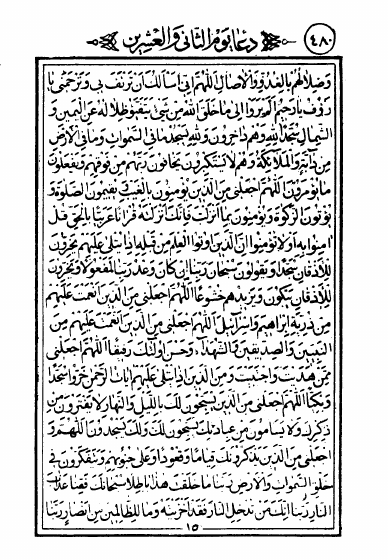 ٤٨٠
دعاء يوم الثاني والعشرين
وظلالهم بالغدو والاصال اللهم اني اسالك ان ترئف بي وترحمني يا
رؤف يا رحيم اولم يروا الى ما خلق الله من شئ يتفيؤ ظلاله عن اليمين و
الشمال سجدا لله وهم داخرون ولله يسجد ما في السموات وما في الارض
من دابة والملائكة وهم لا يستكبرون يخافون ربهم من فوقهم ويفعلون
ما يؤمرون اللهم اجعلني من الذين يؤمنون بالغيب يقيمون الصلوة و
يؤتون الزكوة ويؤمنون بما انزلت فانك انزلته قرانا عربيا بالحق قل
امنوا به اولا تؤمنوا ان الذين اوتوا العلم من قبله اذا يتلى عليهم يخرون
للاذقان سجدا ويقولون سبحان ربنا ان كان وعد ربنا لمفعولا ويخرون
للاذقان يبكون ويزيدهم خشوعا اللهم اجعلني من الذين انعمت عليهم
من ذرية ابراهيم واسرائيل اللهم اجعلني من الذين انعمت عليهم من
النبيين والصديقين والشهداء وحسن اولئك رفيقا اللهم اجعلني
ممن هديت واجتبيت ومن الذين اذا تتلى عليهم ايات الرحمن خروا سجدا
وبكيا اللهم اجعلني من الذين يسبحون لك بالليل والنهار لا يفترون من
ذكرك ولا يسامون من عبادتك يسبحون لك ولك يسجدون اللهم و
اجعلني من الذين يذكرونك قياما وقعودا وعلى جنوبهم ويتفكرون في
خلق السموات والارض ربنا ما خلقت هذا باطلا سبحانك فقنا عذاب
النار ربنا انك من تدخل النار فقد اخزيته وما للظالمين من انصار ربنا
١٥